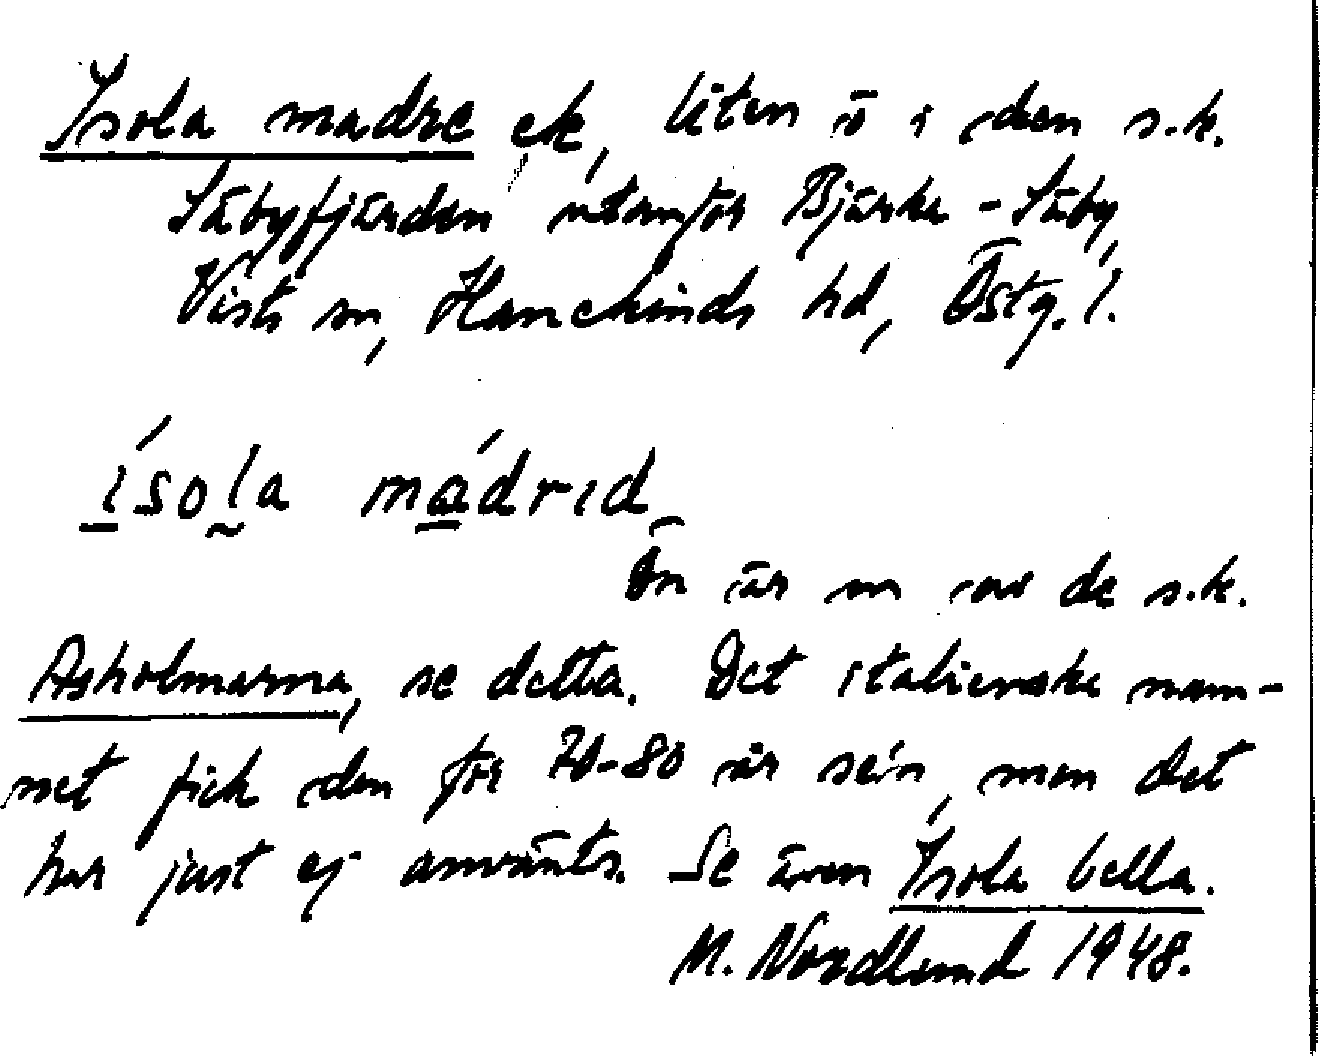 Isola madre ek, liten ö i den s.k.
Säbyfjärden utanför Bjärka-Säby,
Vists sn, Hanekinds hd, Östg. l.
ísola mádrid
Ön är en av de s.k.
Asholmarna, se detta. Det italienska nam-
net fick den för 70-80 år sen, men det
har just ej använts. Se även Isola bella.
M. Nordlund 1948.